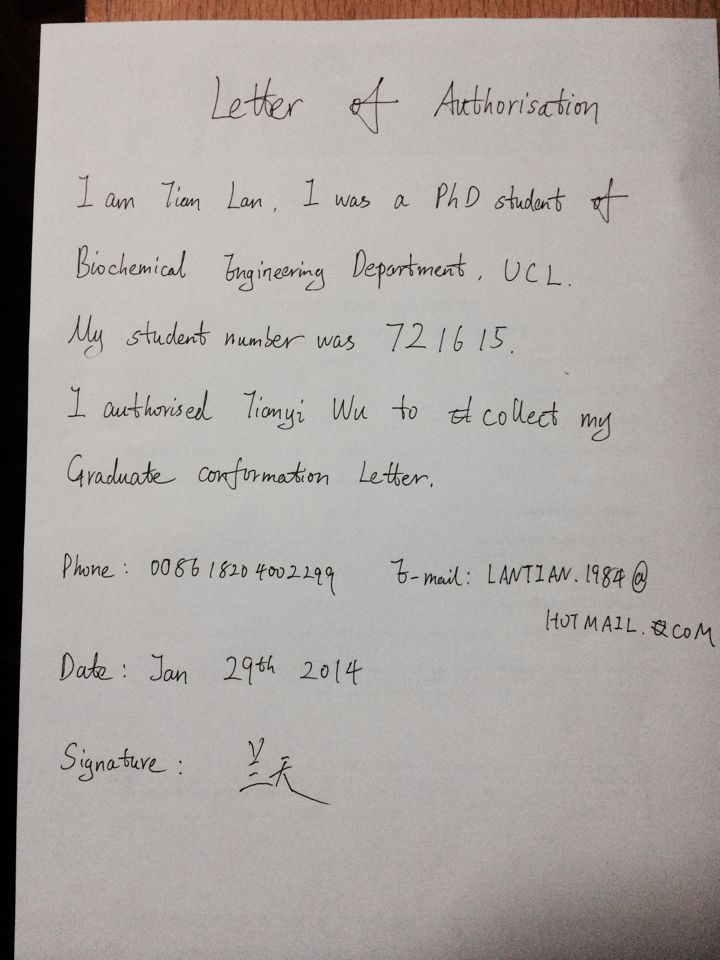 Letter of Authorisation
I am Tian Lan, I was a PhD student of
Biochemical Engineering Department, UCL.
My student number was 721615.
I authorised Tianyi Wu to collect my
Graduate conformation Letter.
Phone: 0086 1820 4002299 E-mail: LANTIAN.1984@
HOTMAIL.COM
Date: Jan 29th 2014
Signature: 兰天